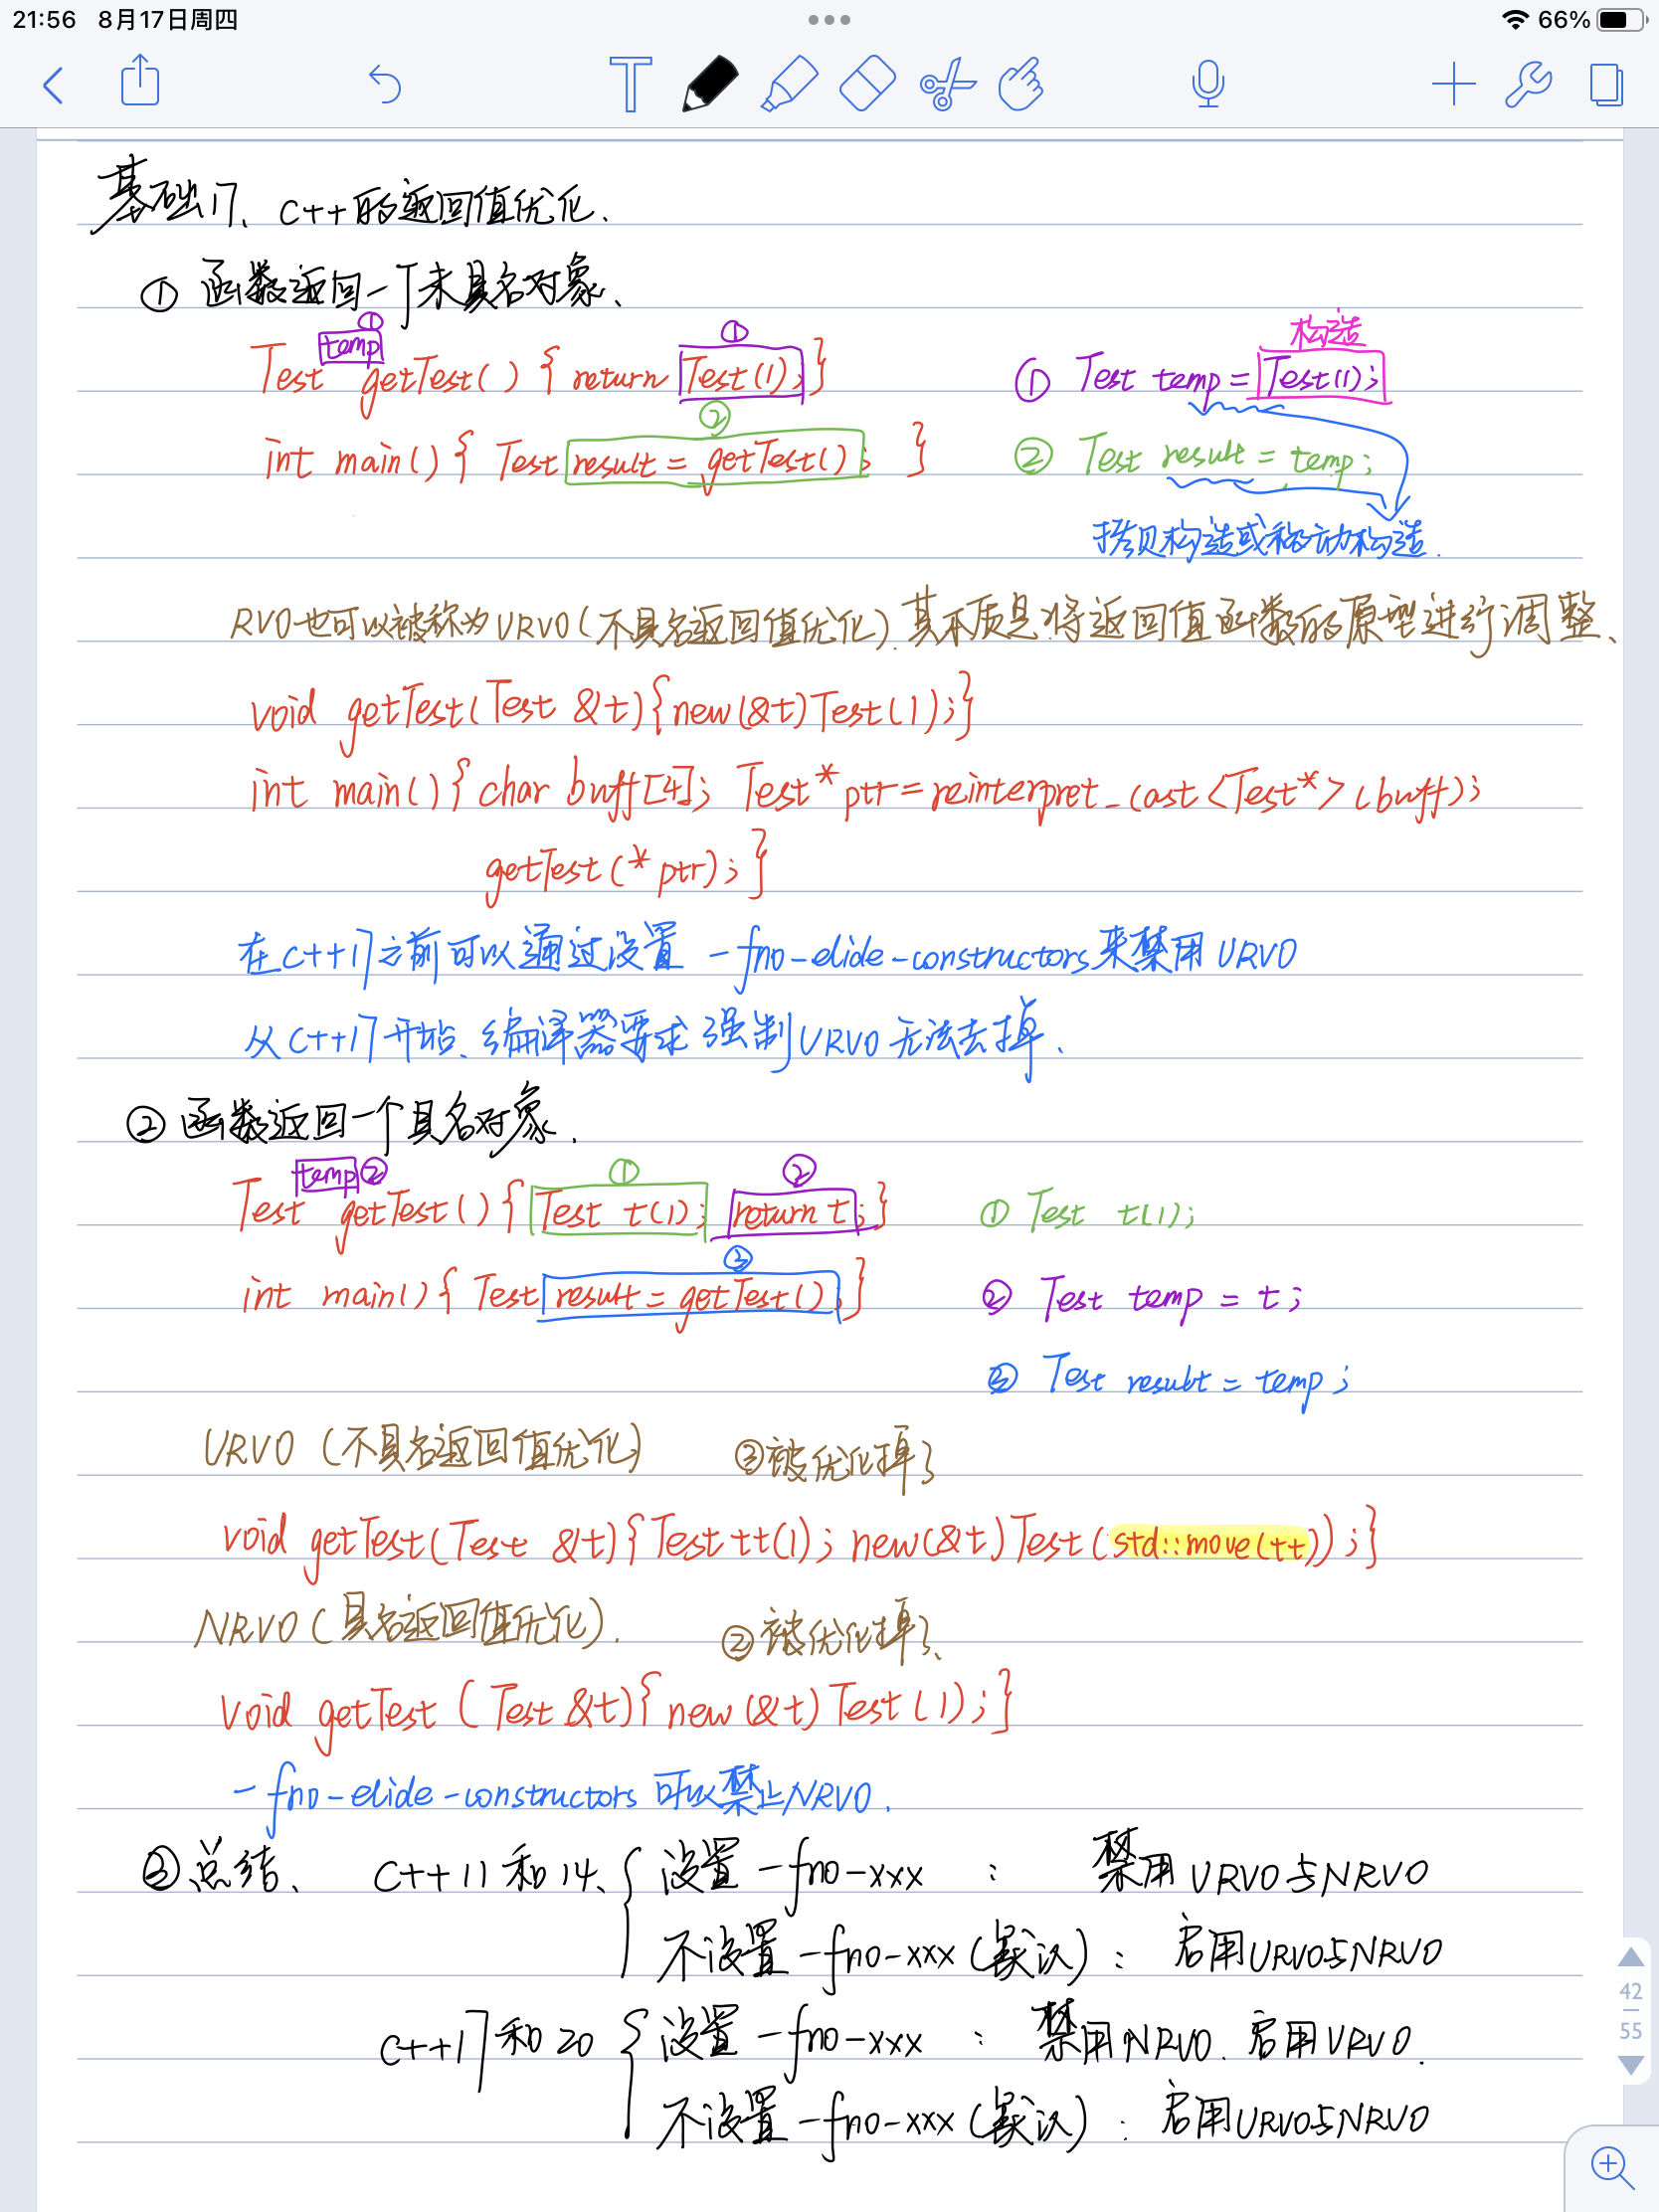 21:56 8月17日周四
66%
基础17、C++的返回值优化.
① 函数返回一个未具名对象、
temp ① ① 构造
Test getTest() { return Test(1); } ① Test temp = Test(1);
②
int main() { Test result = getTest(); } ② Test result = temp;
拷贝构造或移动构造.
RVO也可以被称为URVO(不具名返回值优化).其本质是将返回值函数的原型进行调整、
void getTest(Test &t){new(&t)Test(1);}
int main(){char buff[4]; Test*ptr=reinterpret_cast<Test*>(buff);
getTest(*ptr);}
在C++17之前可以通过设置 -fno-elide-constructors来禁用URVO
从C++17开始、编译器要求强制URVO无法去掉.
② 函数返回一个具名对象.
temp ② ① ②
Test getTest(){Test t(1); return t;} ① Test t(1);
③
int main(){ Test result = getTest();} ② Test temp = t;
③ Test result = temp;
URVO (不具名返回值优化) ③被优化掉了
void getTest(Test &t){Test tt(1); new(&t)Test(std::move(tt));}
NRVO (具名返回值优化). ②被优化掉了、
void getTest (Test &t){new(&t)Test(1);}
-fno-elide-constructors 可以禁止NRVO.
③总结、 C++11和14、 设置 -fno-xxx : 禁用URVO与NRVO
不设置 -fno-xxx (默认) : 启用URVO与NRVO
C++17和20 设置 -fno-xxx : 禁用NRVO.启用URVO.
不设置 -fno-xxx (默认) : 启用URVO与NRVO
42
55